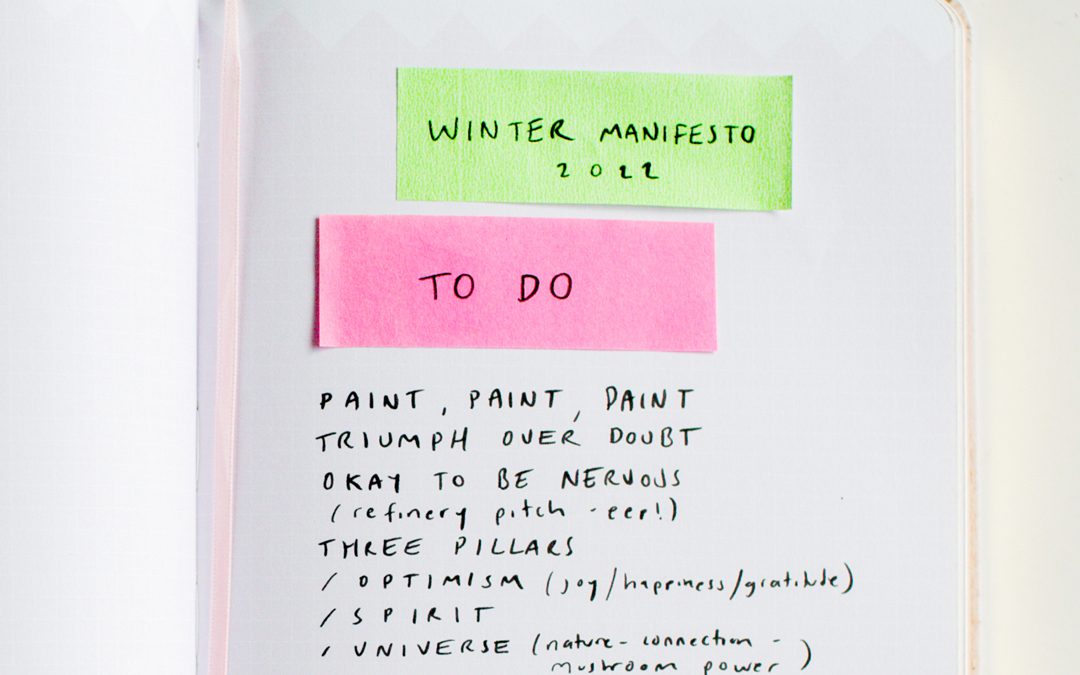 WINTER MANIFESTO
2022
TO DO
PAINT, PAINT, PAINT
TRIUMPH OVER DOUBT
OKAY TO BE NERVOUS
(refinery pitch - eer!)
THREE PILLARS
/ OPTIMISM (joy/happiness/gratitude)
/ SPIRIT
/ UNIVERSE (nature - connection -
mushroom power)